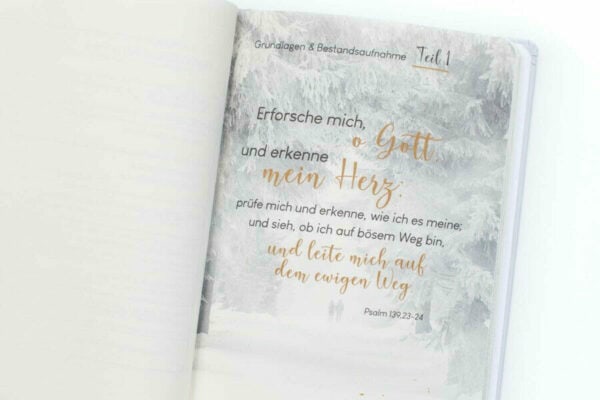 Grundlagen & Bestandsaufnahme Teil 1
Erforsche mich,
o Gott,
und erkenne
mein Herz;
prüfe mich und erkenne, wie ich es meine;
und sieh, ob ich auf bösem Weg bin,
und leite mich auf
dem ewigen Weg.
Psalm 139,23-24